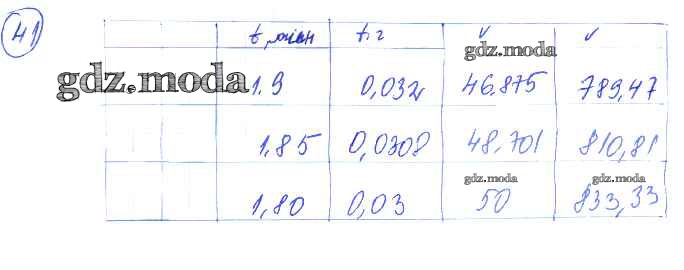 41
t, мин t, г v v
gdz.moda
gdz.moda
1.9 0,032 46,875 789,47
1,85 0,0308 48,701 810,81
gdz.moda gdz.moda
1,80 0,03 50 833,33